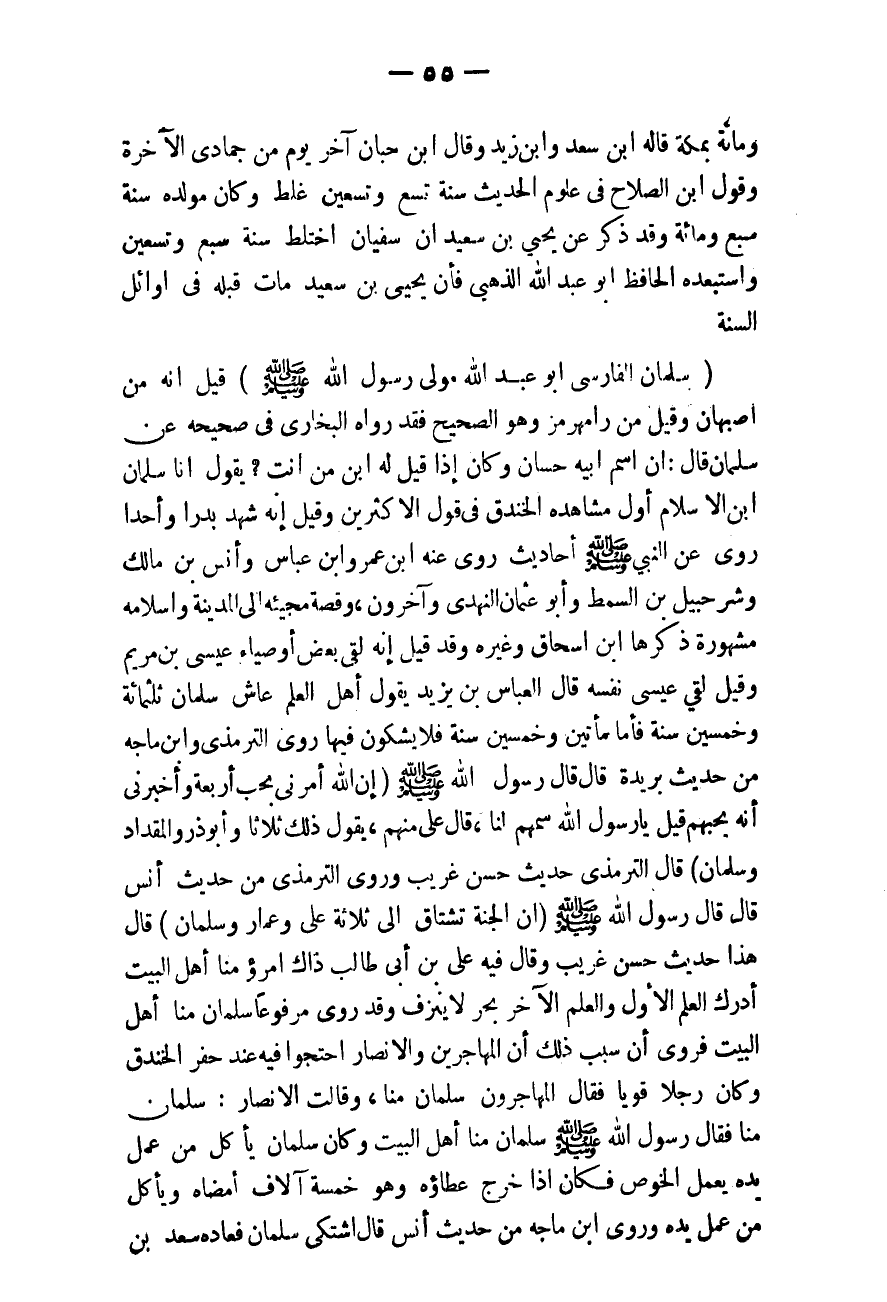 — ٥٥ —
ومائة بمكة قاله ابن سعد وابن زيد وقال ابن حبان آخر يوم من جمادى الآخرة
وقول ابن الصلاح فى علوم الحديث سنة تسع وتسعين غلط وكان مولده سنة
سبع ومائة وقد ذكر عن يحيي بن سعيد ان سفيان اختلط سنة سبع وتسعين
واستبعده الحافظ ابو عبد الله الذهبي فأن يحيى بن سعيد مات قبله فى اوائل
السنة
( سلمان الفارسى ابو عبد الله مولى رسول الله ﷺ ) قيل انه من
اصبهان وقيل من رامهرمز وهو الصحيح فقد رواه البخارى فى صحيحه عن
سلمان قال : ان اسم ابيه حسان وكان إذا قيل له ابن من انت ? يقول انا سلمان
ابن الاسلام أول مشاهده الخندق فى قول الاكثرين وقيل إنه شهد بدرا وأحدا
روى عن النبي ﷺ أحاديث روى عنه ابن عمر وابن عباس وأنس بن مالك
وشرحبيل بن السمط وأبو عثمان النهدى وآخرون ، وقصة مجيئه الى المدينة واسلامه
مشهورة ذكرها ابن اسحاق وغيره وقد قيل إنه لقى بعض أوصياء عيسى بن مريم
وقيل لقي عيسى نفسه قال العباس بن يزيد يقول أهل العلم عاش سلمان ثلثمائة
وخمسين سنة فأما مأتين وخمسين سنة فلا يشكون فيها روى الترمذى وابن ماجه
من حديث بريدة قال قال رسول الله ﷺ ( إن الله أمرنى بحب أربعة وأخبرنى
أنه يحبهم قيل يارسول الله سمهم لنا ، قال على منهم ، يقول ذلك ثلاثا وأبوذر والمقداد
وسلمان ) قال الترمذى حديث حسن غريب وروى الترمذى من حديث أنس
قال قال رسول الله ﷺ ( ان الجنة تشتاق الى ثلاثة على وعمار وسلمان ) قال
هذا حديث حسن غريب وقال فيه على بن أبى طالب ذاك امرؤ منا أهل البيت
أدرك العلم الأول والعلم الآخر بحر لاينزف وقد روى مرفوعا سلمان منا أهل
البيت فروى أن سبب ذلك أن المهاجرين والانصار احتجوا فيه عند حفر الخندق
وكان رجلا قويا فقال المهاجرون سلمان منا ، وقالت الانصار : سلمان
منا فقال رسول الله ﷺ سلمان منا أهل البيت وكان سلمان يأكل من عمل
يده يعمل الخوص فكان اذا خرج عطاؤه وهو خمسة آلاف أمضاه ويأكل
من عمل يده وروى ابن ماجه من حديث أنس قال اشتكى سلمان فعاده سعد بن